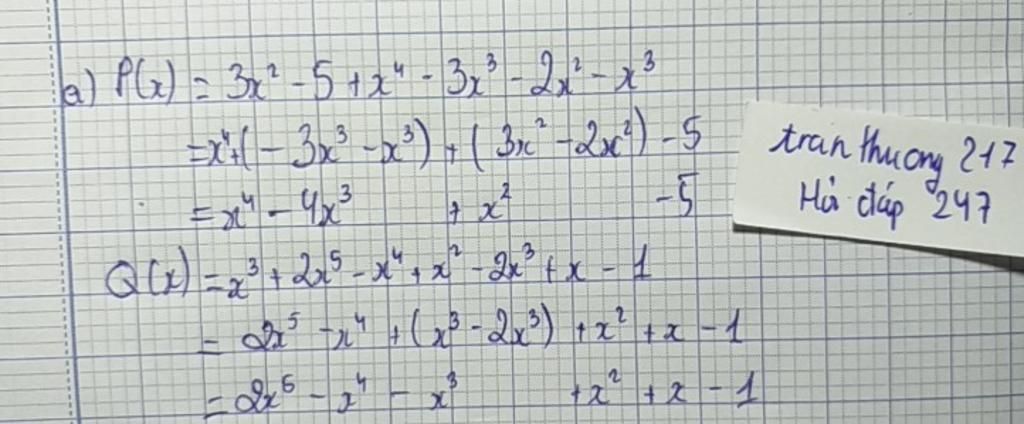 a) P(x) = 3x² - 5 + x⁴ - 3x³ - 2x² - x³
= x⁴ + (- 3x³ - x³) + (3x² - 2x²) - 5
= x⁴ - 4x³ + x² - 5
Q(x) = x³ + 2x⁵ - x⁴ + x² - 2x³ + x - 1
= 2x⁵ - x⁴ + (x³ - 2x³) + x² + x - 1
= 2x⁵ - x⁴ - x³ + x² + x - 1
tran thuong 217
Hỏi đáp 247